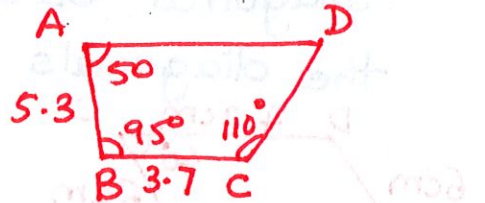 A D
50
5.3
95° 110°
B 3.7 C